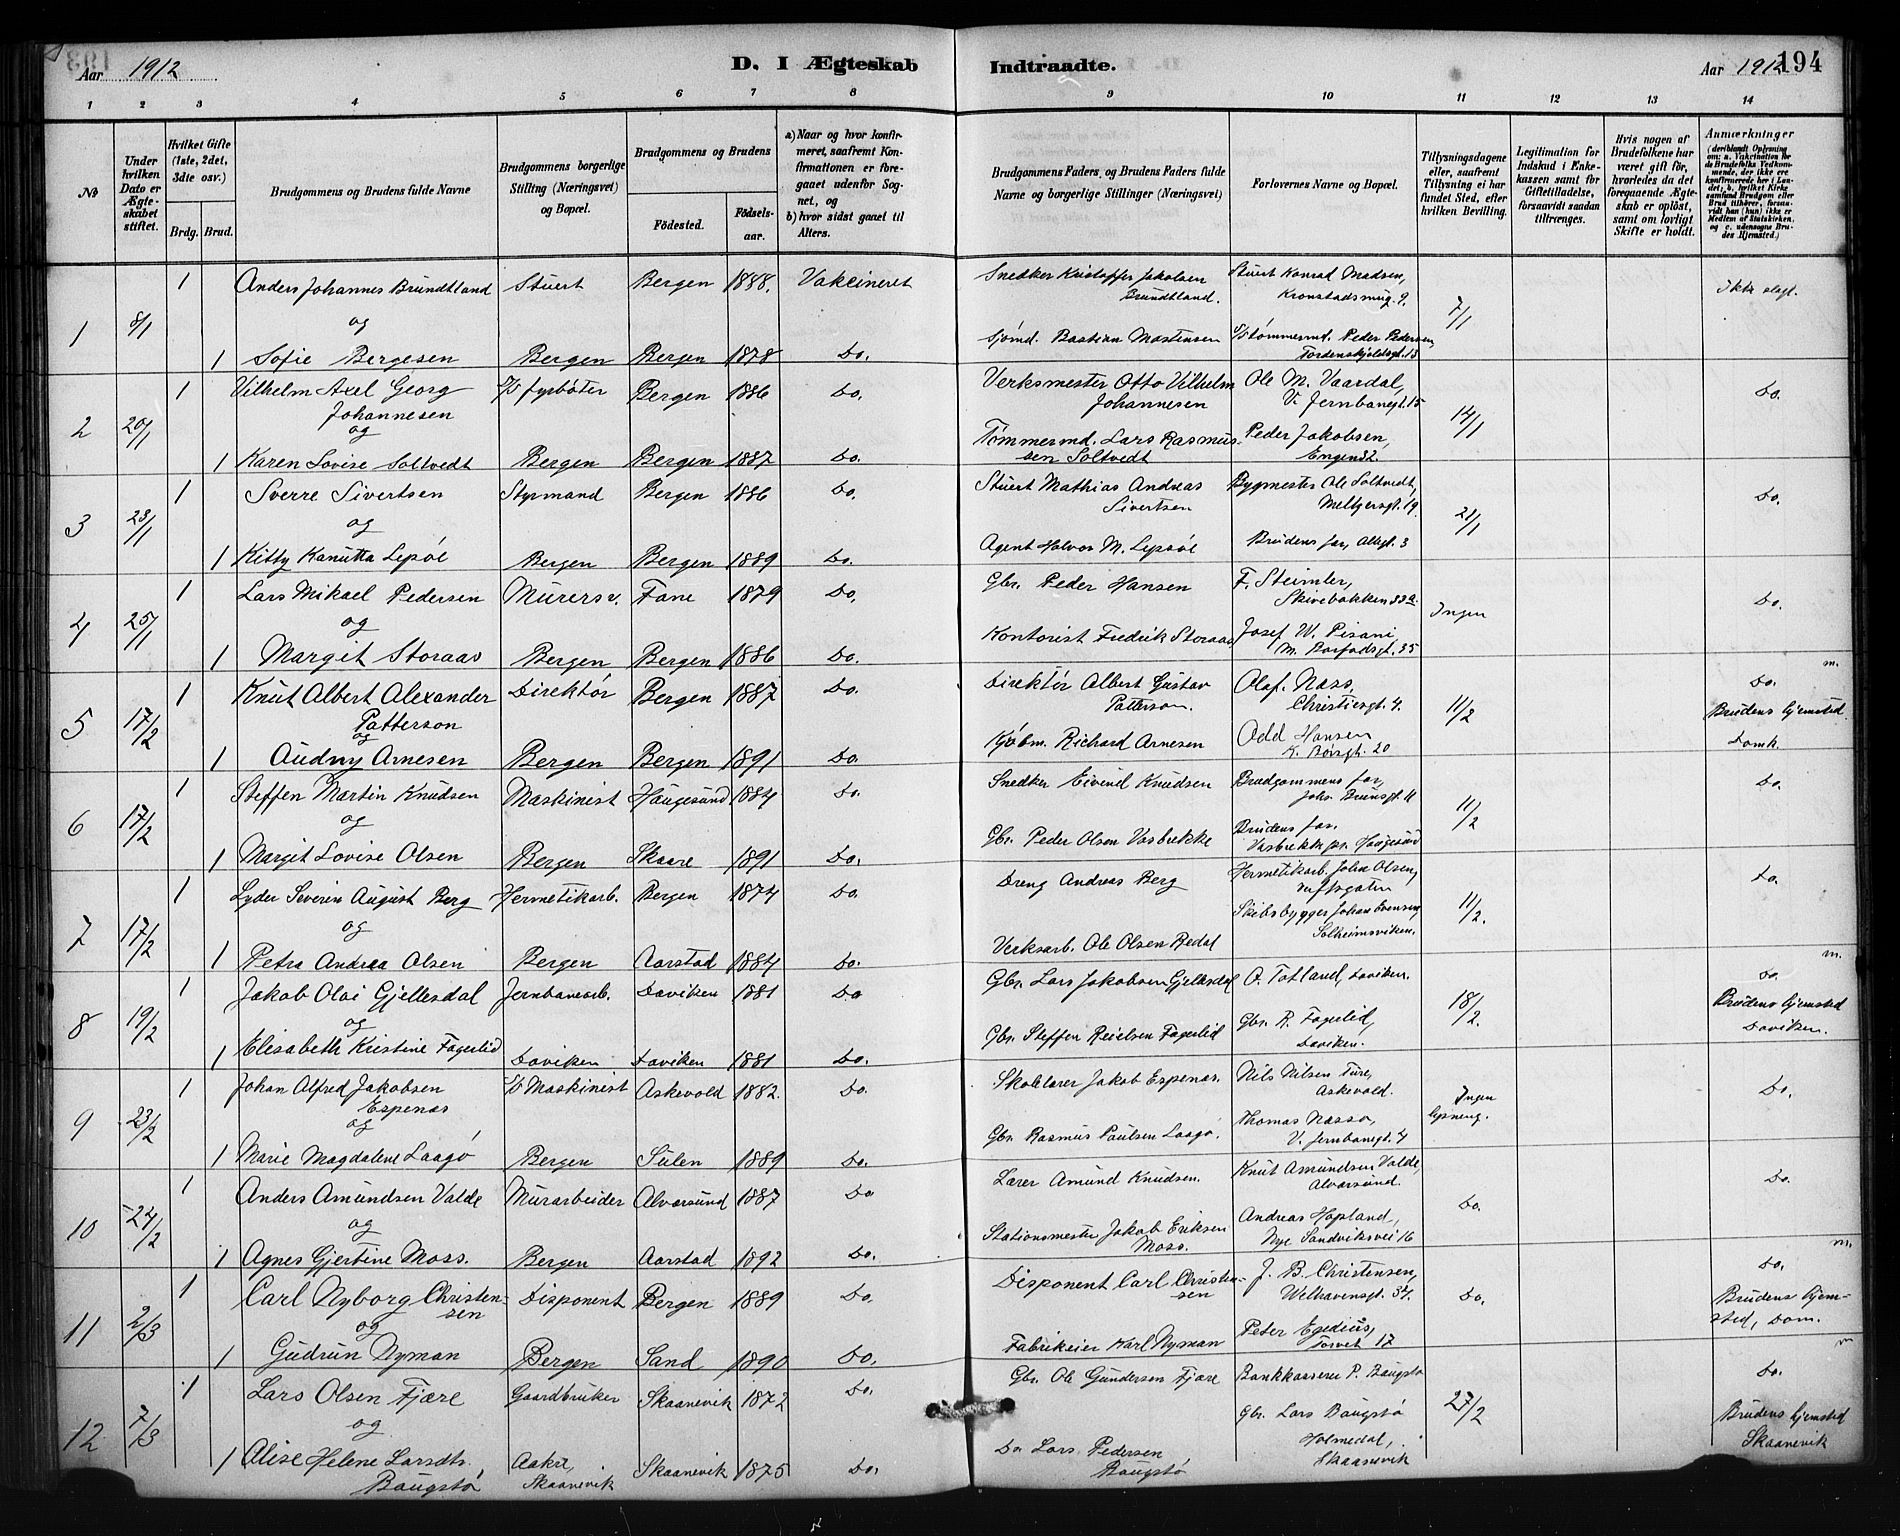 Aar 1912 D. I Ægteskab Indtraadte. Aar 1912 194
1 2 3 4 5 6 7 8 9 10 11 12 13 14
No
Under hvilken Dato er Ægteskabet stiftet.
Hvilket Gifte (1ste, 2det, 3die osv.)
Brdg. Brud.
Brudgommens og Brudens fulde Navne
Brudgommens borgerlige Stilling (Næringsvei) og Bopæl.
Brudgommens og Brudens
Fødested. Fødselsaar.
a) Naar og hvor konfirmeret, saafremt Konfirmationen er foregaaet udenfor Sognet, og
b) hvor sidst gaaet til Alters.
Brudgommens Faders, og Brudens Faders fulde Navne og borgerlige Stillinger (Næringsvei)
Forlovernes Navne og Bopæl.
Tillysningsdagene eller, saafremt Tillysning ei har fundet Sted, efter hvilken Bevilling.
Legitimation for Indskud i Enkekassen samt for Giftetilladelse, forsaavidt saadan tiltrænges.
Hvis nogen af Brudefolkene har været gift før, hvorledes da det foregaaende Ægteskab er opløst, samt om lovligt Skifte er holdt.
Anmærkninger (deriblandt Oplysning om: a. Vakcination for de Brudefolks Vedkommende, der ikke ere konfirmerede her i Landet; b. hvilket Kirkesamfund Brudgom eller Brud tilhører, forsaavidt han (hun) ikke er Medlem af Statskirken, og c. udensogns Brudes Hjemsted.)
1 8/1 1 Anders Johannes Brundtland Stuert Bergen 1888. Vakcineret Snedker Kristoffer Jakobsen Brundtland. Stuert Konrad Madsen, Kronstadsmug. 9. 7/1 Ikke slegt.
og
1 Sofie Bergesen Bergen Bergen 1878 Do. Sjömd. Bastian Mortensen Tømmermd. Peder Pedersen, Tordenskjoldsgt. 13
2 20/1 1 Vilhelm Axel Georg Johannesen fyrbøter Bergen 1886 Do. Verksmester Otto Vilhelm Johannesen Ole M. Vaardal, V. Jernbanegt. 15 14/1 Do.
og
1 Karen Lovise Soltvedt Bergen Bergen 1887 Do. Tømmermd. Lars Rasmussen Soltvedt Peder Jakobsen, Engen 32.
3 23/1 1 Sverre Sivertsen Styrmand Bergen 1886 Do. Stuert Mathias Andreas Sivertsen Bygmester Ole Soltvedt, Meltzersgt. 19. 21/1 Do.
og
1 Kitty Kanutta Lepsöe Bergen Bergen 1889 Do. Agent Halvor M. Lepsöe Brudens far, Allégt. 3
4 25/1 1 Lars Mikael Pedersen Murersv. Fane 1879 Do. Gbr. Peder Hansen F. Steimler, Skivebakken 33a. Ingen Do.
og
1 Margit Storaas Bergen Bergen 1886 Do. Kontorist Fredrik Storaas Josef W. Pisani, M. Barfodsgt. 35
5 17/2 1 Knut Albert Alexander Patterson Direktör Bergen 1887 Do. Direktör Albert Gustav Patterson. Olaf Næss, Christiesgt. 4. 11/2 m. Do. Brudens hjemsted Domk.
og
1 Audny Arnesen Bergen Bergen 1891 Do. Kjöbm. Richard Arnesen Odd Hansen K. Börsgt. 20
6 17/2 1 Steffen Martin Knudsen Maskinist Haugesund 1884 Do. Snedker Eivind Knudsen Brudgommens far, Johs. Brunsgt. 11 11/2 Do.
og
1 Margit Lovise Olsen Bergen Skaare 1891 Do. Gbr. Peder Olsen Vasbrekke Brudens far, Vasbrekke pr. Haugesund
7 17/2 1 Lyder Severin August Berg Hermetikarb. Bergen 1874 Do. Dreng Andreas Berg Hermetikarb. Johan Olsen, 11/2. Do.
og
1 Petra Andrea Olsen Bergen Aarstad 1884 Do. Verksarb. Ole Olsen Redal Skibsbygger Johan Evensen, Solheimsviken.
8 19/2 1 Jakob Olai Gjellesdal Jernbanearb. Daviken 1881 Do Gbr. Lars Jakobsen Gjellesdal O. Totland, Daviken. 18/2. m. Do Brudens hjemsted Daviken.
og
1 Elisabeth Kristine Fagerlid Daviken Daviken 1881 Do. Gbr. Steffen Reielsen Fagerlid Gbr. R. Fagerlid, Daviken.
9 23/2 1 Johan Alfred Jakobsen Espenæs Maskinist Askevold 1882. Do. Skolelærer Jakob Espenæs. Nils Nilsen Ture, Askevold. Ingen lysning. Do.
og
1 Marie Magdalene Laagö Bergen Sulen 1889 Do. Gbr. Rasmus Paulsen Laagö. Thomas Næsso, V. Jernbanegt. 4
10 24/2 1 Anders Amundsen Valde Murarbeider Alversund 1887 Do Lærer Amund Knudsen. Knut Amundsen Valde, Alversund. Do. Do.
og
1 Agnes Gjertine Moss. Bergen Aarstad 1892 Do. Stationsmester Jakob Eriksen Moss. Andreas Hopland, Nye Sandviksvei 16
11 2/3 1 Carl Nyborg Christensen Disponent Bergen 1889 Do. Disponent Carl Christensen J. B. Christensen, Welhavensgt. 34. Do. m. Do. Brudens hjemsted, Dom.
og
1 Gudrun Nyman Bergen Sand 1890 Do. Fabrikeier Karl Nyman Peter Egedius, Torvet 17
12 7/3 1 Lars Olsen Fjære Gaardbruker Skaanevik 1872 Do. Gbr. Ole Gundersen Fjære Bankkasserer P. Baugstö 27/2 m Do. Brudens hjemsted Skaanevik
og
1 Alise Helene Larsdtr. Baugstö Aakre, Skaanevik Skaanevik 1875 Do. Do Lars Pedersen Baugstö Gbr. Lars Baugstö Holmedal, Skaanevik